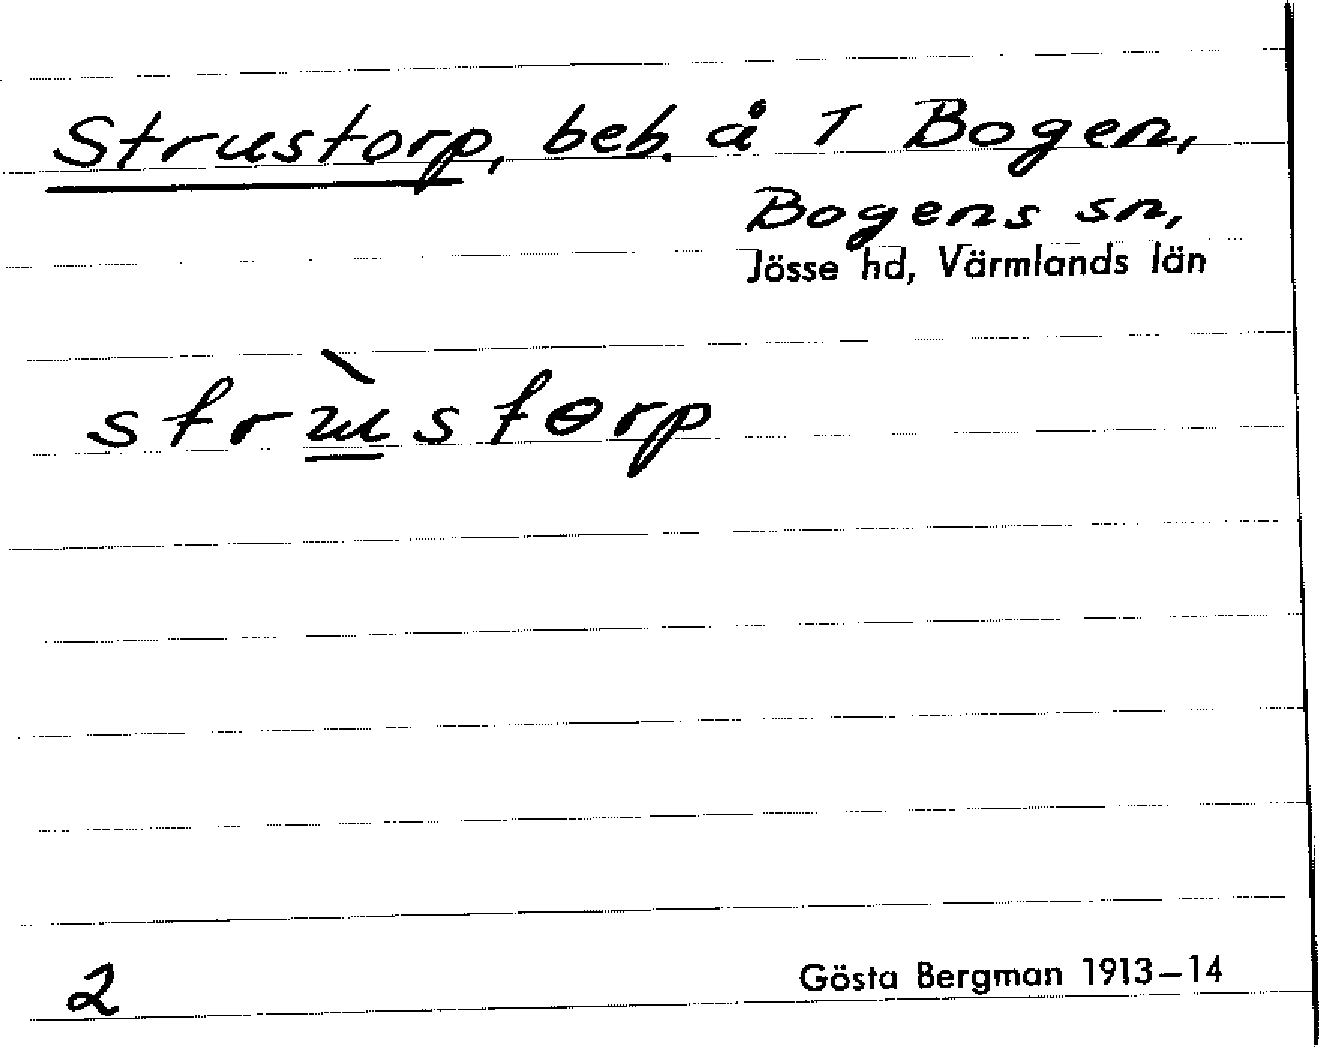 Strustorp, beb. å 1 Bogen,
Bogens sn,
Jösse hd, Värmlands län
strùstɵrp
2
Gösta Bergman 1913–14